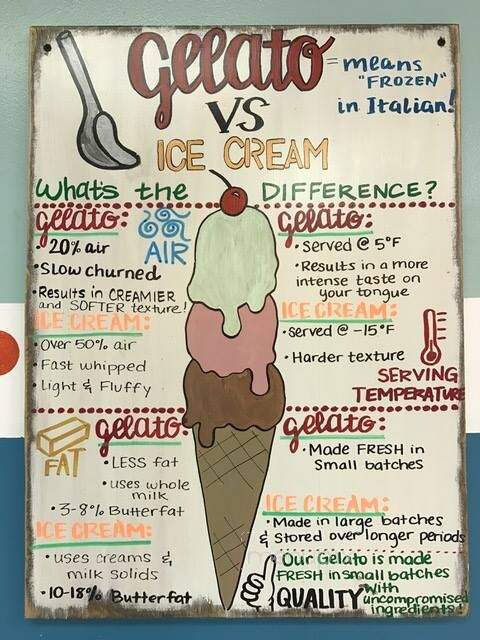 Gelato = means
"FROZEN"
in Italian!
VS
ICE CREAM
What's the DIFFERENCE?
gelato:
• 20% air
AIR
• Slow churned
• Results in CREAMIER
and SOFTER texture!
ICE CREAM:
• Over 50% air
• Fast whipped
• Light & Fluffy
gelato:
• Served @ 5°F
• Results in a more
intense taste on
your tongue
ICE CREAM:
• served @ -15°F
• Harder texture
SERVING
TEMPERATURE
gelato:
FAT
• LESS fat
• uses whole
milk
• 3-8% Butterfat
ICE CREAM:
• uses creams &
milk solids
• 10-18% Butterfat
gelato:
• Made FRESH in
Small batches
ICE CREAM:
• Made in large batches
& stored over longer periods
Our Gelato is made
FRESH in small batches
QUALITY with
uncompromised
ingredients!